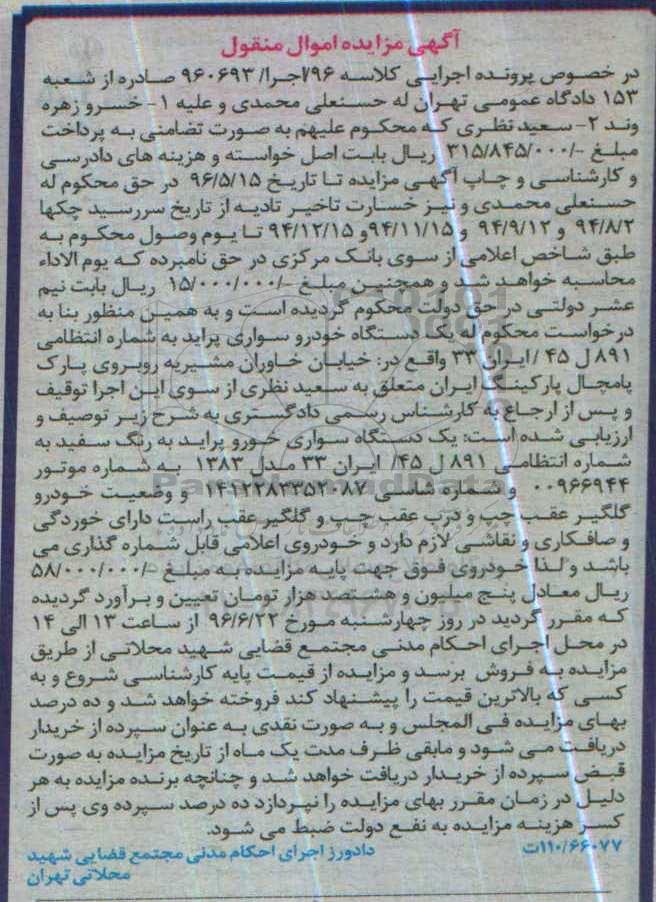 آگهی مزایده اموال منقول
در خصوص پرونده اجرایی کلاسه ۹۶/اجرا/۹۶۰۶۹۳ صادره از شعبه
۱۵۳ دادگاه عمومی تهران له حسنعلی محمدی و علیه ۱- خسرو زهره
وند ۲- سعید نظری که محکوم علیهم به صورت تضامنی به پرداخت
مبلغ -/۳۱۵/۸۴۵/۰۰۰ ریال بابت اصل خواسته و هزینه های دادرسی
و کارشناسی و چاپ آگهی مزایده تا تاریخ ۹۶/۵/۱۵ در حق محکوم له
حسنعلی محمدی و نیز خسارت تاخیر تادیه از تاریخ سررسید چکها
۹۴/۸/۲ و ۹۴/۹/۱۲ و ۹۴/۱۱/۱۵و ۹۴/۱۲/۱۵ تا یوم وصول محکوم به
طبق شاخص اعلامی از سوی بانک مرکزی در حق نامبرده که یوم الاداء
محاسبه خواهد شد و همچنین مبلغ -/۱۵/۰۰۰/۰۰۰ ریال بابت نیم
عشر دولتی در حق دولت محکوم گردیده است و به همین منظور بنا به
درخواست محکوم له یک دستگاه خودرو سواری پراید به شماره انتظامی
۸۹۱ ل ۴۵ /ایران ۳۳ واقع در: خیابان خاوران مشیریه روبروی پارک
پامچال پارکینگ ایران متعلق به سعید نظری از سوی این اجرا توقیف
و پس از ارجاع به کارشناس رسمی دادگستری به شرح زیر توصیف و
ارزیابی شده است: یک دستگاه سواری خورو پراید به رنگ سفید به
شماره انتظامی ۸۹۱ ل ۴۵/ ایران ۳۳ مدل ۱۳۸۳ به شماره موتور
۰۰۹۶۶۹۴۴ و شماره شاسی ۱۴۱۲۲۸۳۳۵۲۰۸۷ و وضعیت خودرو
گلگیر عقب چپ و درب عقب چپ و گلگیر عقب راست دارای خوردگی
و صافکاری و نقاشی لازم دارد و خودروی اعلامی قابل شماره گذاری می
باشد و لذا خودروی فوق جهت پایه مزایده به مبلغ -/۵۸/۰۰۰/۰۰۰
ریال معادل پنج میلیون و هشتصد هزار تومان تعیین و برآورد گردیده
که مقرر گردید در روز چهارشنبه مورخ ۹۶/۶/۲۲ از ساعت ۱۳ الی ۱۴
در محل اجرای احکام مدنی مجتمع قضایی شهید محلاتی از طریق
مزایده به فروش برسد و مزایده از قیمت پایه کارشناسی شروع و به
کسی که بالاترین قیمت را پیشنهاد کند فروخته خواهد شد و ده درصد
بهای مزایده فی المجلس و به صورت نقدی به عنوان سپرده از خریدار
دریافت می شود و مابقی ظرف مدت یک ماه از تاریخ مزایده به صورت
قبض سپرده از خریدار دریافت خواهد شد و چنانچه برنده مزایده به هر
دلیل در زمان مقرر بهای مزایده را نپردازد ده درصد سپرده وی پس از
کسر هزینه مزایده به نفع دولت ضبط می شود.
۱۱۰/۶۶۰۷۷ت دادورز اجرای احکام مدنی مجتمع قضایی شهید
محلاتی تهران